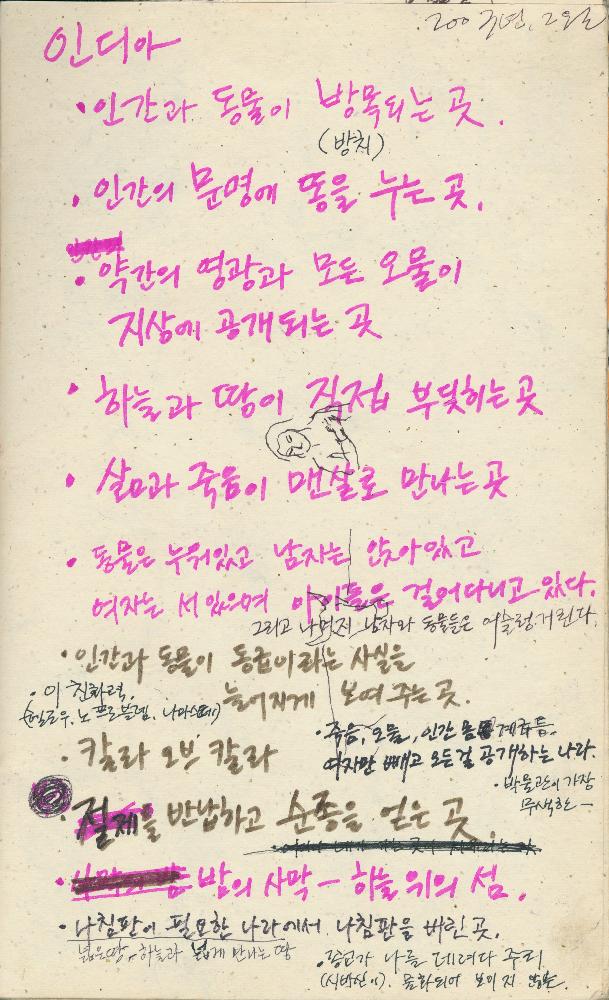 200 7년, 2월
인디아
• 인간과 동물이 방목되는 곳.
(방치)
• 인간의 문명에 똥을 누는 곳.
• 약간의 영광과 모든 오물이
지상에 공개되는 곳
• 하늘과 땅이 직접 부딪히는 곳
• 삶과 죽음이 맨살로 만나는 곳
• 동물은 누워있고 남자는 앉아있고
여자는 서있으며 아이들은 걸어다니고 있다.
그리고 나머지 남자와 동물들은 어슬렁거린다.
• 인간과 동물이 동급이라는 사실을
늘어지게 보여주는 곳.
• 이 친화력.
(헬로우, 노 프로블렘, 나마스떼)
• 칼라 오브 칼라
• 죽음, 오물, 인간 계급 등.
여자만 빼고 모든걸 공개하는 나라.
• 박물관이 가장
무색한 —
• 절제을 반납하고 순종을 얻은 곳.
• 밤의 사막 – 하늘 위의 섬.
• 나침판이 필요한 나라에서 나침판을 버린 곳.
넓은 땅, 하늘과 넓게 만나는 땅
• 나를 데려다 주리
(시바신이). 동화되어 보이지 않는